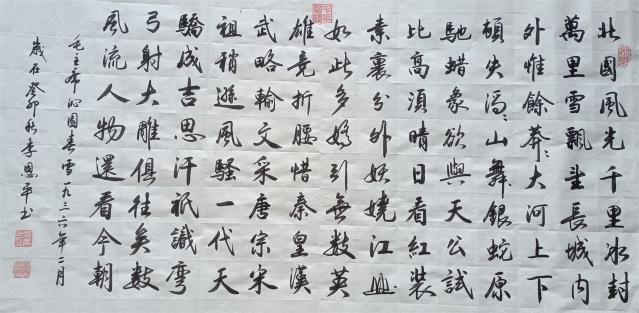 北國風光千里冰封
萬里雪飄望長城內
外惟餘莽〻大河上下
頓失滔〻山舞銀蛇原
馳蜡象欲與天公試
比高須晴日看紅裝
素裹分外妖嬈江山
如此多嬌引無數英
雄竟折腰惜秦皇漢
武略輸文采唐宗宋
祖稍遜風騷一代天
驕成吉思汗祇識彎
弓射大雕俱往矣數
風流人物還看今朝
毛主席沁園春雪一九三六年二月
歲在癸卯秋李恩平書